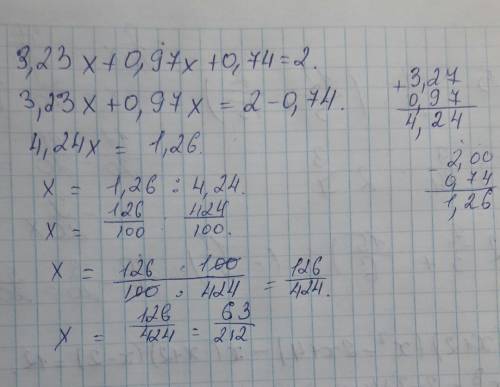 3,23x+0,97x+0,74=2.
3,23x+0,97x = 2-0,74.
4,24x = 1,26.
x = 1,26 : 4,24.
x = 126/100 : 424/100.
x = 126 · 100 / 100 : 424 = 126/424.
x = 126/424 = 63/212
+ 3,27
0,97
4,24
- 2,00
0,74
1,26